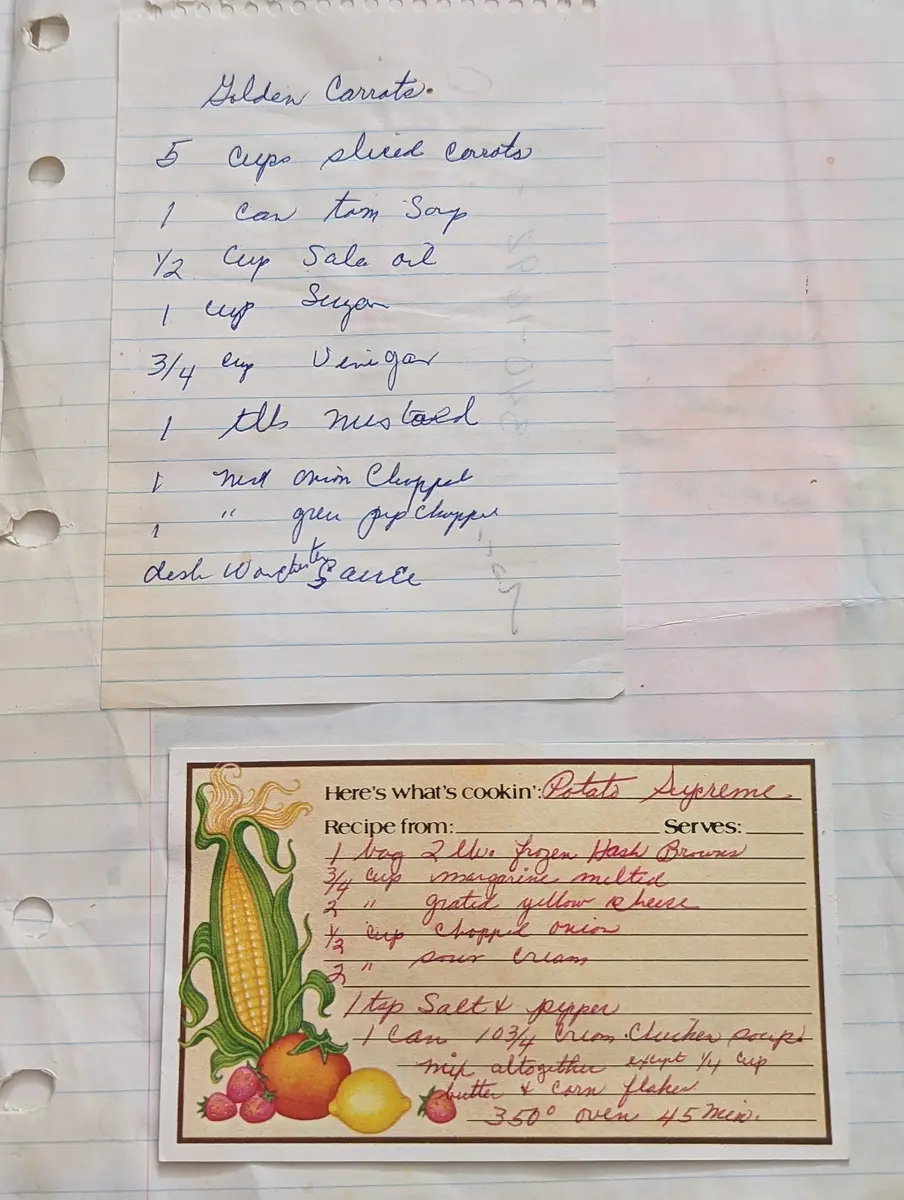 Golden Carrots.
5 Cups sliced Carrots
1 Can tom Soup
1/2 Cup Sala oil
1 cup Sugar
3/4 cup Vinigar
1 tbls mustard
1 med onion Chopped
1 " green pep Chopped
dash Worchester Sauce
Here's what's cookin': Potato Supreme
Recipe from: Serves:
1 bag 2 lb. frozen Hash Browns
3/4 cup margarine melted
2 " grated yellow cheese
1/2 cup chopped onion
2 " sour cream
1 tsp Salt & pepper
1 Can 10 3/4 Cream Chicken soup.
mix altogether except 1/4 cup
butter & corn flakes
350° oven 45 min.